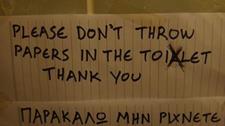 PLEASE DON'T THROW
PAPERS IN THE TOILET
THANK YOU
ΠΑΡΑΚΑΛΩ ΜΗΝ ΡΙΧΝΕΤΕ